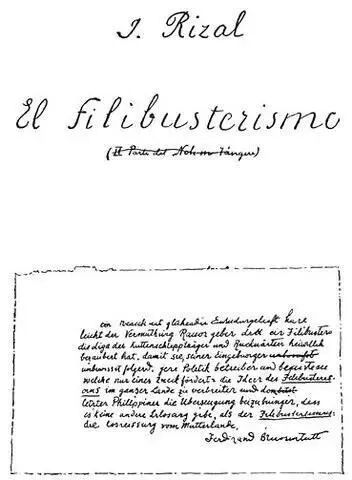 J. Rizal
El Filibusterismo
(II Parte del Noli me tángere)
leicht der Vermuthung Raum geben dass ein Filibustero
die Liga der Kuttenschleppträger und heimlich
bezaubert hat, damit sie, seiner
unbewusst folgend, jene Politik betreiben und
welche nur einen Zweck fördert: die Ideen des Filibusteris-
mus im ganzen Lande zu verbreiten und
letzten Philippiner die Überzeugung beizubringen, dass
es keine andere gibt, als der Filibusterismus:
die Losreissung vom Mutterlande.
Ferdinand Blumentritt